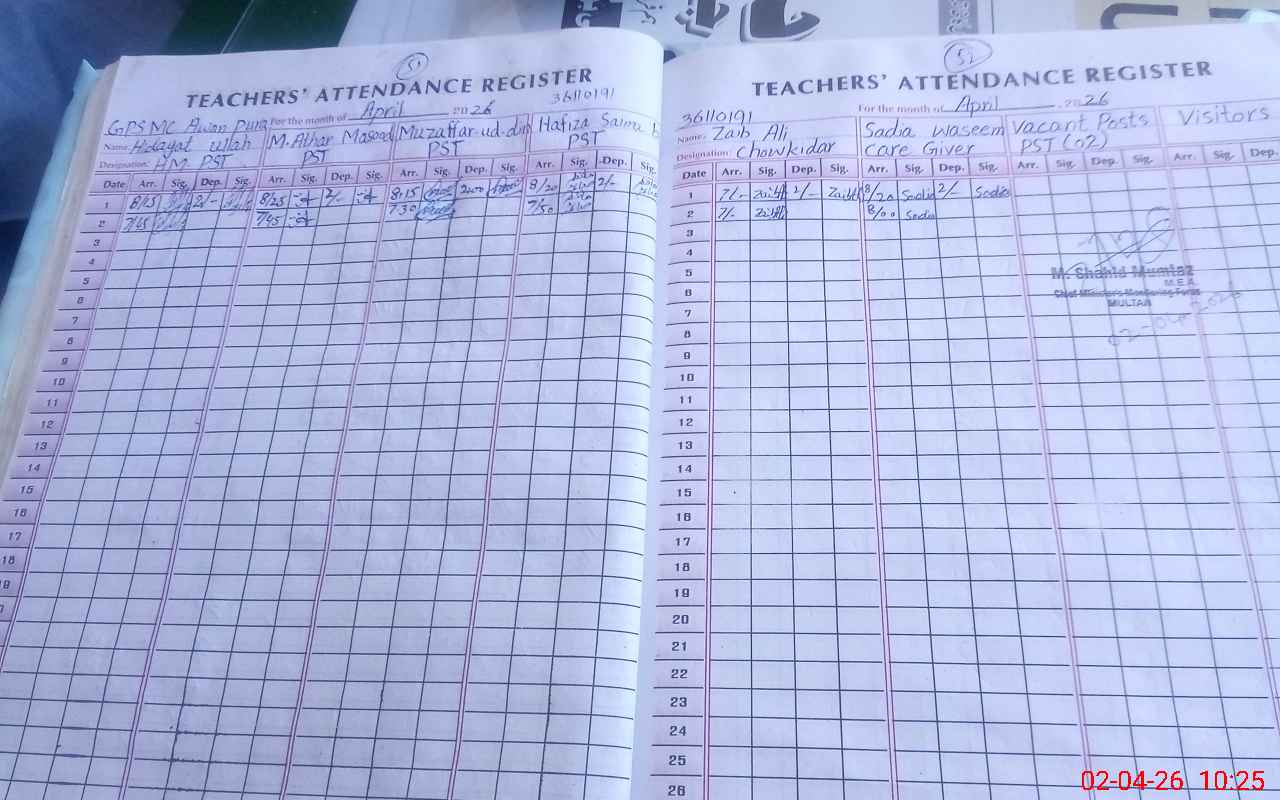 51
TEACHERS' ATTENDANCE REGISTER
For the month of April 2026 36110191
GPSMC Awan Pura
Name. Hidayat ullah M. Athar Masood Muzaffar-ud-din Hafiza Saima
Designation: H.M. PST PST PST PST
Date Arr. Sig. Dep. Sig. Arr. Sig. Dep. Sig. Arr. Sig. Dep. Sig. Arr. Sig. Dep. Sig.
1 8/25 2/- 8/25 2/- 8:15 2:00 8/20 2/-
2 7/45 7/45 7:30 7/50
3
4
5
6
7
8
9
10
11
12
13
14
15
16
17
18
19
52
TEACHERS' ATTENDANCE REGISTER
For the month of April 2026
36110191
Name. Zaib Ali Sadia Waseem Vacant Posts Visitors
Designation: Chowkidar Care Giver PST (02)
Date Arr. Sig. Dep. Sig. Arr. Sig. Dep. Sig. Arr. Sig. Dep. Sig. Arr. Sig. Dep.
1 7/- Zaib 2/- Zaib 8/20 Sadia 2/- Sadia
2 7/- Zaib 8/00 Sadia
3
4
5
M. Shahid Mumtaz
M.E.A.
6
Chief Minister's Monitoring Force
MULTAN
7
02-04-2026
8
9
10
11
12
13
14
15
16
17
18
19
20
21
22
23
24
25
26
02-04-26 10:25